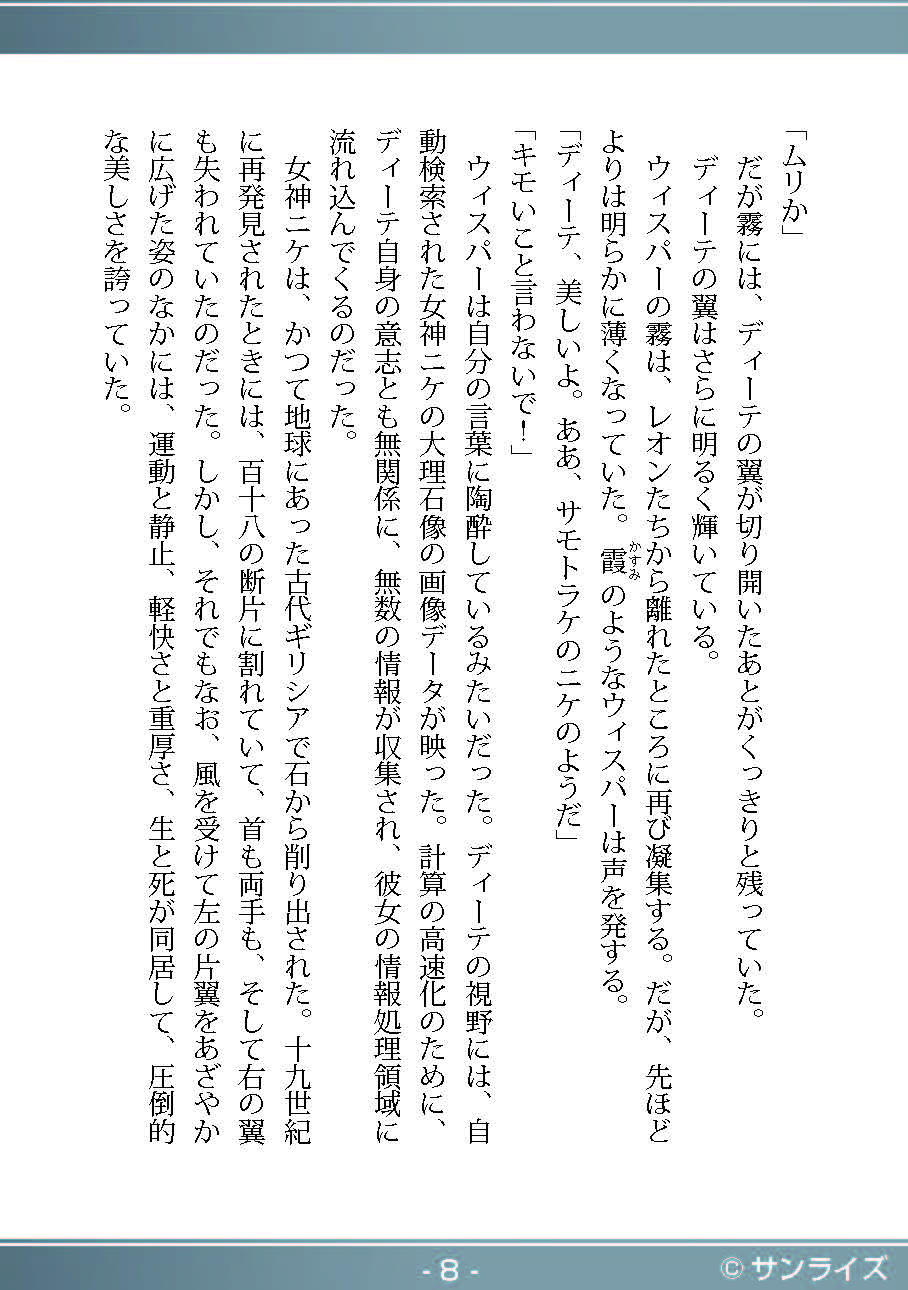 「ムリか」
　だが霧には、ディーテの翼が切り開いたあとがくっきりと残っていた。
　ディーテの翼はさらに明るく輝いている。
　ウィスパーの霧は、レオンたちから離れたところに再び凝集する。だが、先ほど
よりは明らかに薄くなっていた。霞かすみのようなウィスパーは声を発する。
「ディーテ、美しいよ。ああ、サモトラケのニケのようだ」
「キモいこと言わないで！」
　ウィスパーは自分の言葉に陶酔しているみたいだった。ディーテの視野には、自
動検索された女神ニケの大理石像の画像データが映った。計算の高速化のために、
ディーテ自身の意志とも無関係に、無数の情報が収集され、彼女の情報処理領域に
流れ込んでくるのだった。
　女神ニケは、かつて地球にあった古代ギリシアで石から削り出された。十九世紀
に再発見されたときには、百十八の断片に割れていて、首も両手も、そして右の翼
も失われていたのだった。しかし、それでもなお、風を受けて左の片翼をあざやか
に広げた姿のなかには、運動と静止、軽快さと重厚さ、生と死が同居して、圧倒的
な美しさを誇っていた。
- 8 -
© サンライズ